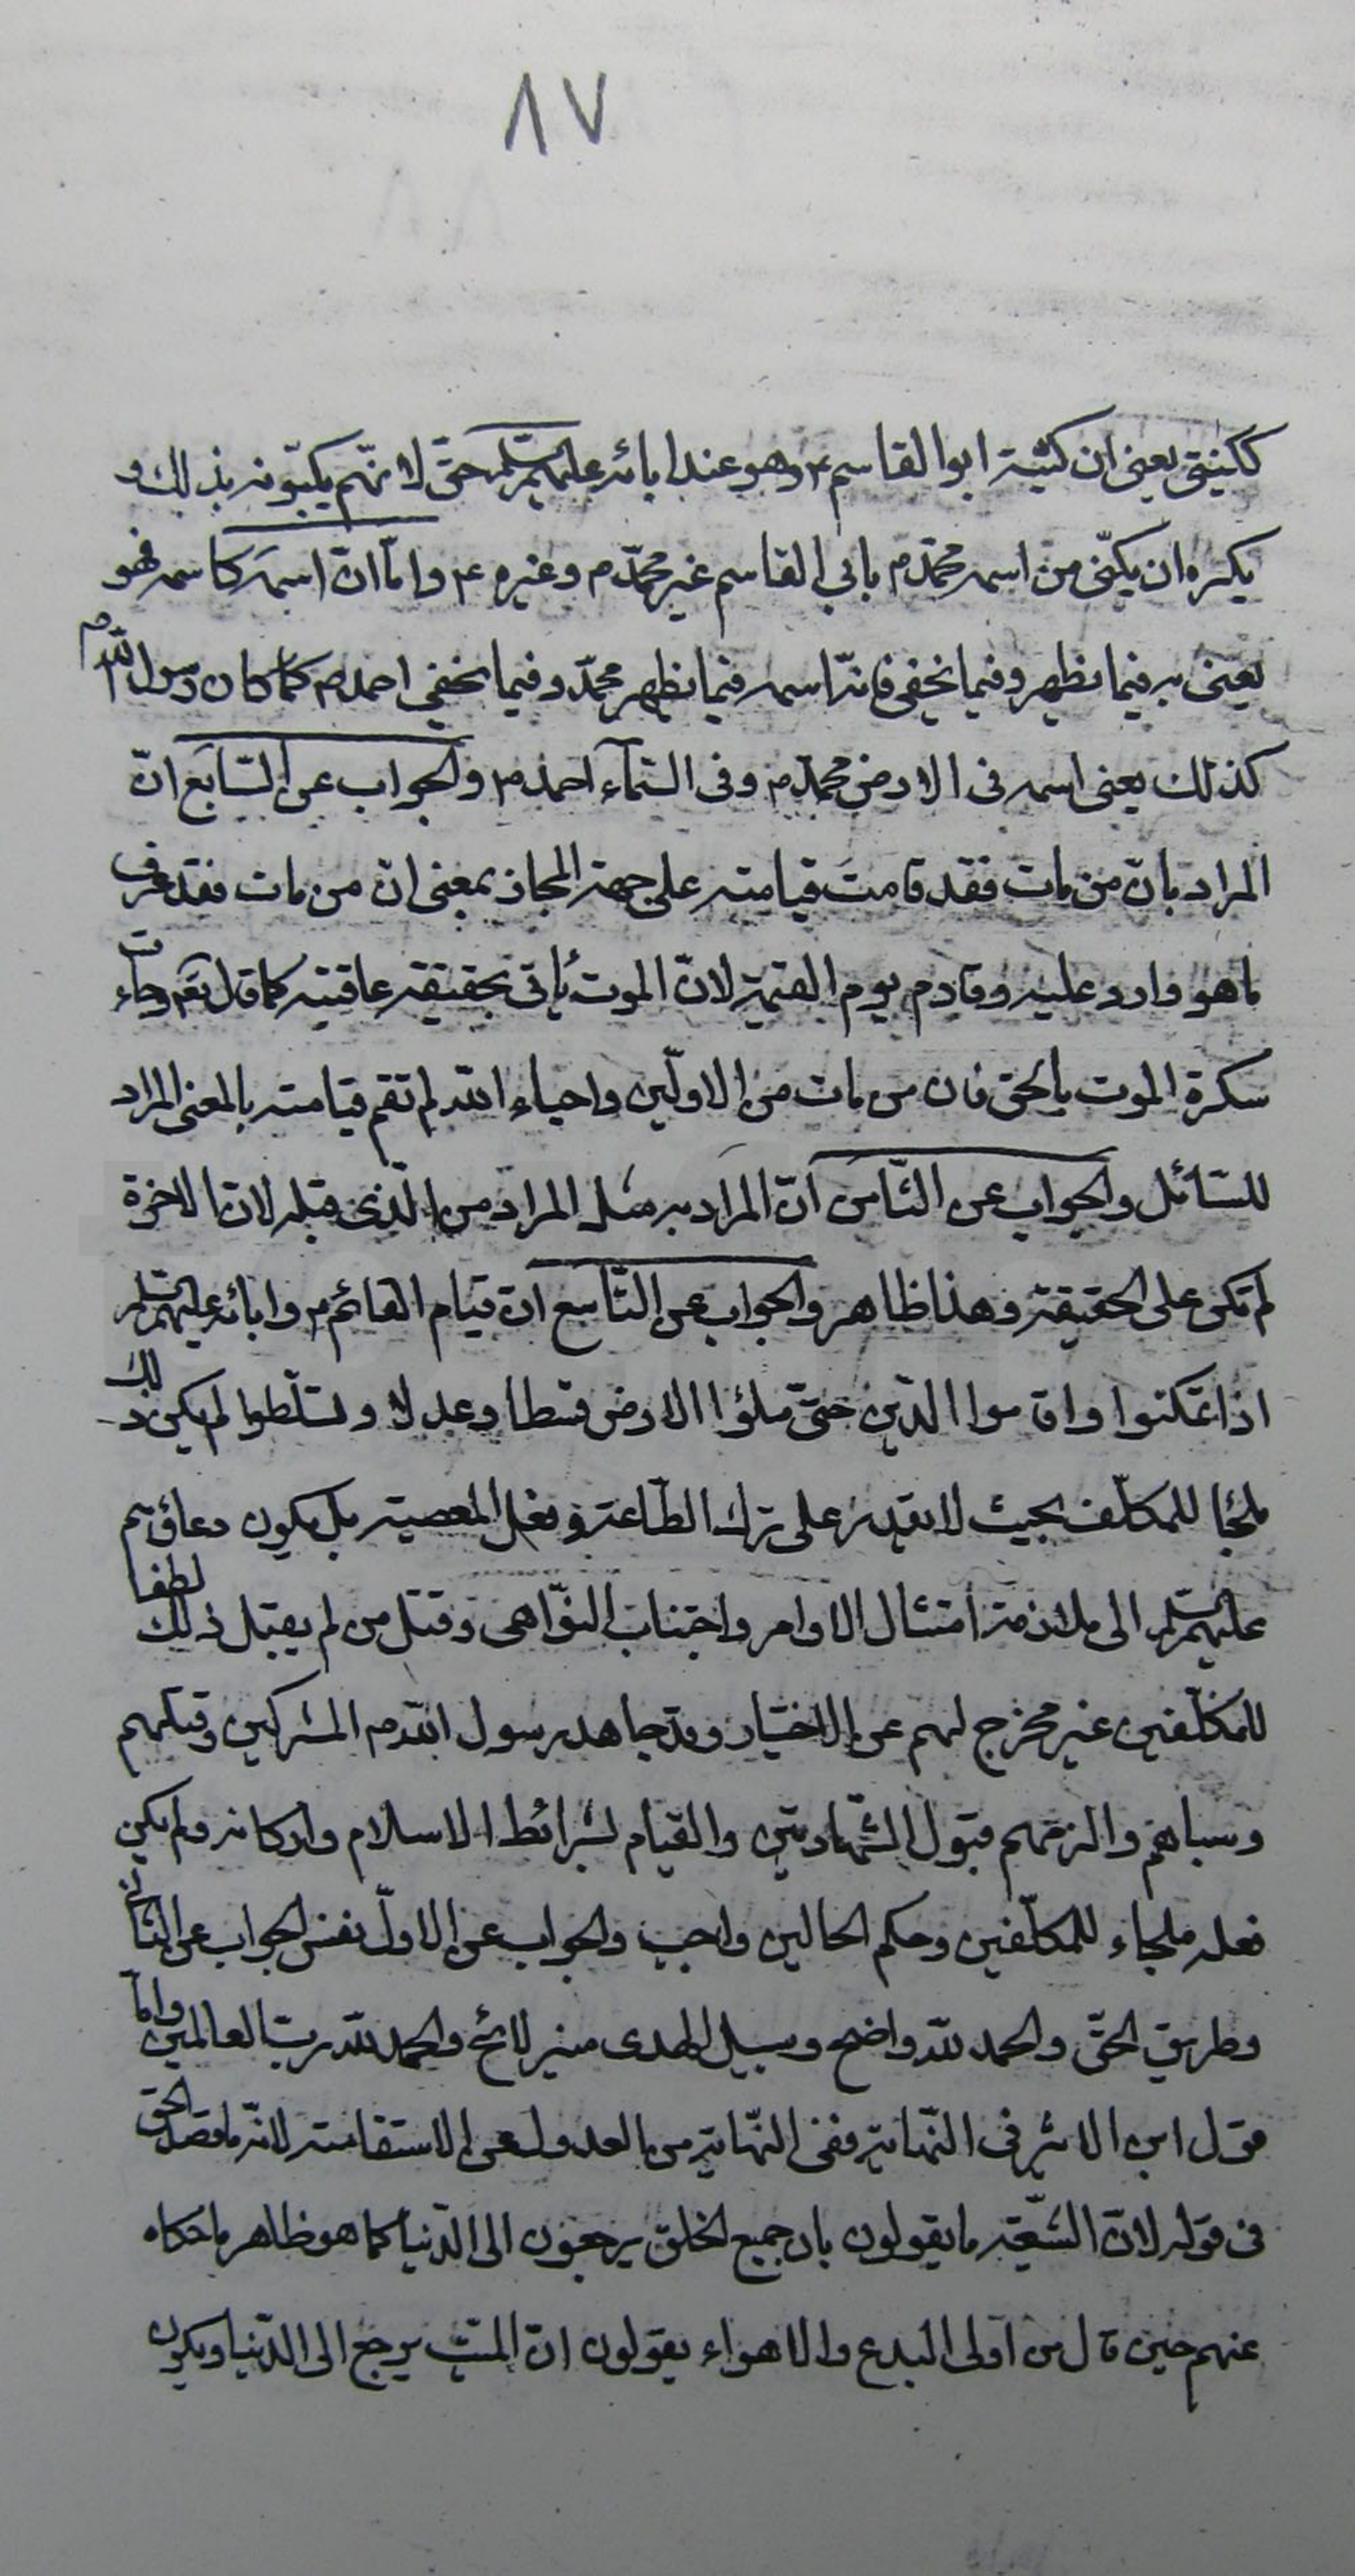 ٨٧
ككنيتي يعني ان كنيته ابوالقاسم ع وهو عند ابائه عليهم السلم حتى لانهم يكنونه بذلك و
يكره ان يكنى من اسمه محمد م بابي القاسم غير محمد م وغيره ع واما ان اسمه كاسمه فهو
يعني به فيما نظهر وفيما نخفي فانّ اسمه فيما نظهر محمّد وفيما نخفي احمد م كما كان رسول الله م
كذلك يعني اسمه في الارض محمد م وفي السّمآء احمد م والجواب عن السّابع انّ
المراد بانّ من مات فقد قامت قيامته على جهة المجاز بمعنى انّ من مات فقد عرف
ما هو وارد عليه وقادم يوم القيمة لانّ الموت يأتي بحقيقة عاقبته كما قال تعم وجاءت
سكرة الموت بالحق فان من مات من الاولين واحياء الله لم تقم قيامته بالمعنى المراد
للسّائل والجواب عن الثّامن انّ المراد به مثل المراد من الّذي قبله لانّ الاخرة
لم تكن على الحقيقة وهذا ظاهر والجواب عن التّاسع انّ قيام القائم ع وابائه عليهم السلم
اذا تمكنوا واقاموا الدّين حتّى ملؤا الارض قسطا وعدلا وتسلّطوا لم يكن ذلك
ملجئا للمكلّف بحيث لا يقدر على ترك الطّاعة وفعل المعصية بل يكون دعاؤهم
عليهم السلم الى ملازمة امتثال الاوامر واجتناب النّواهي وقتل من لم يقبل ذلك لطفا
للمكلّفين غير مخرج لهم عن الاختيار وقد جاهد رسول الله م المشركين وقتلهم
وسباهم والزمهم قبول الشّهادتين والقيام بشرائط الاسلام واركانه ولم يكن
فعله ملجاء للمكلّفين وحكم الحالين واحد والجواب عن الاولّ نفس الجواب عن الثاني
وطريق الحقّ والحمد لله واضح وسبيل الهدى منير لائح والحمد لله ربّ العالمين وامّا
قول ابن الاثير في النّهاية ففي النّهاية من العدول عن الاستقامة لانّه ما قصد الحق
في قوله لانّ الشّيعة ما يقولون بان جميع الخلق يرجعون الى الدّنيا كما هو ظاهر ما حكاه
عنهم حين قال من اولى البدع والاهواء يقولون انّ الميّت يرجع الى الدّنيا ويكون